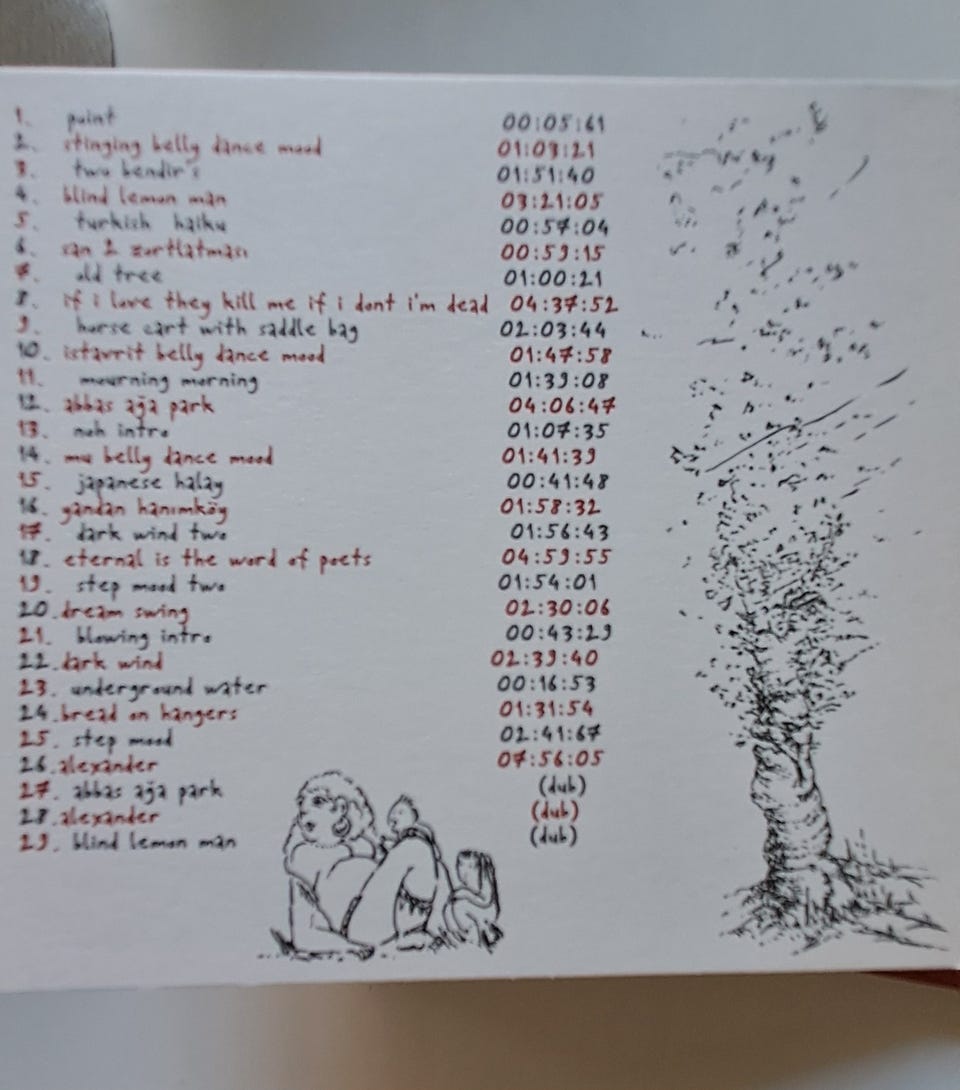 1. point 00:05:61
2. stinging belly dance mood 01:09:21
3. two bendir's 01:51:40
4. blind lemon man 03:21:05
5. turkish haiku 00:57:04
6. san 2 zortlatması 00:59:15
7. old tree 01:00:21
8. if i love they kill me if i dont i'm dead 04:37:52
9. horse cart with saddle bag 02:03:44
10. istavrit belly dance mood 01:47:58
11. mourning morning 01:39:08
12. abbas ağa park 04:06:47
13. neh intro 01:07:35
14. mu belly dance mood 01:41:39
15. japanese halay 00:41:48
16. yandan hanımköy 01:58:32
17. dark wind two 01:56:43
18. eternal is the word of poets 04:59:55
19. step mood two 01:54:01
20. dream swing 02:30:06
21. blowing intro 00:43:29
22. dark wind 02:39:40
23. underground water 00:16:53
24. bread on hangers 01:31:54
25. step mood 02:41:67
26. alexander 07:56:05
27. abbas ağa park (dub)
28. alexander (dub)
29. blind lemon man (dub)